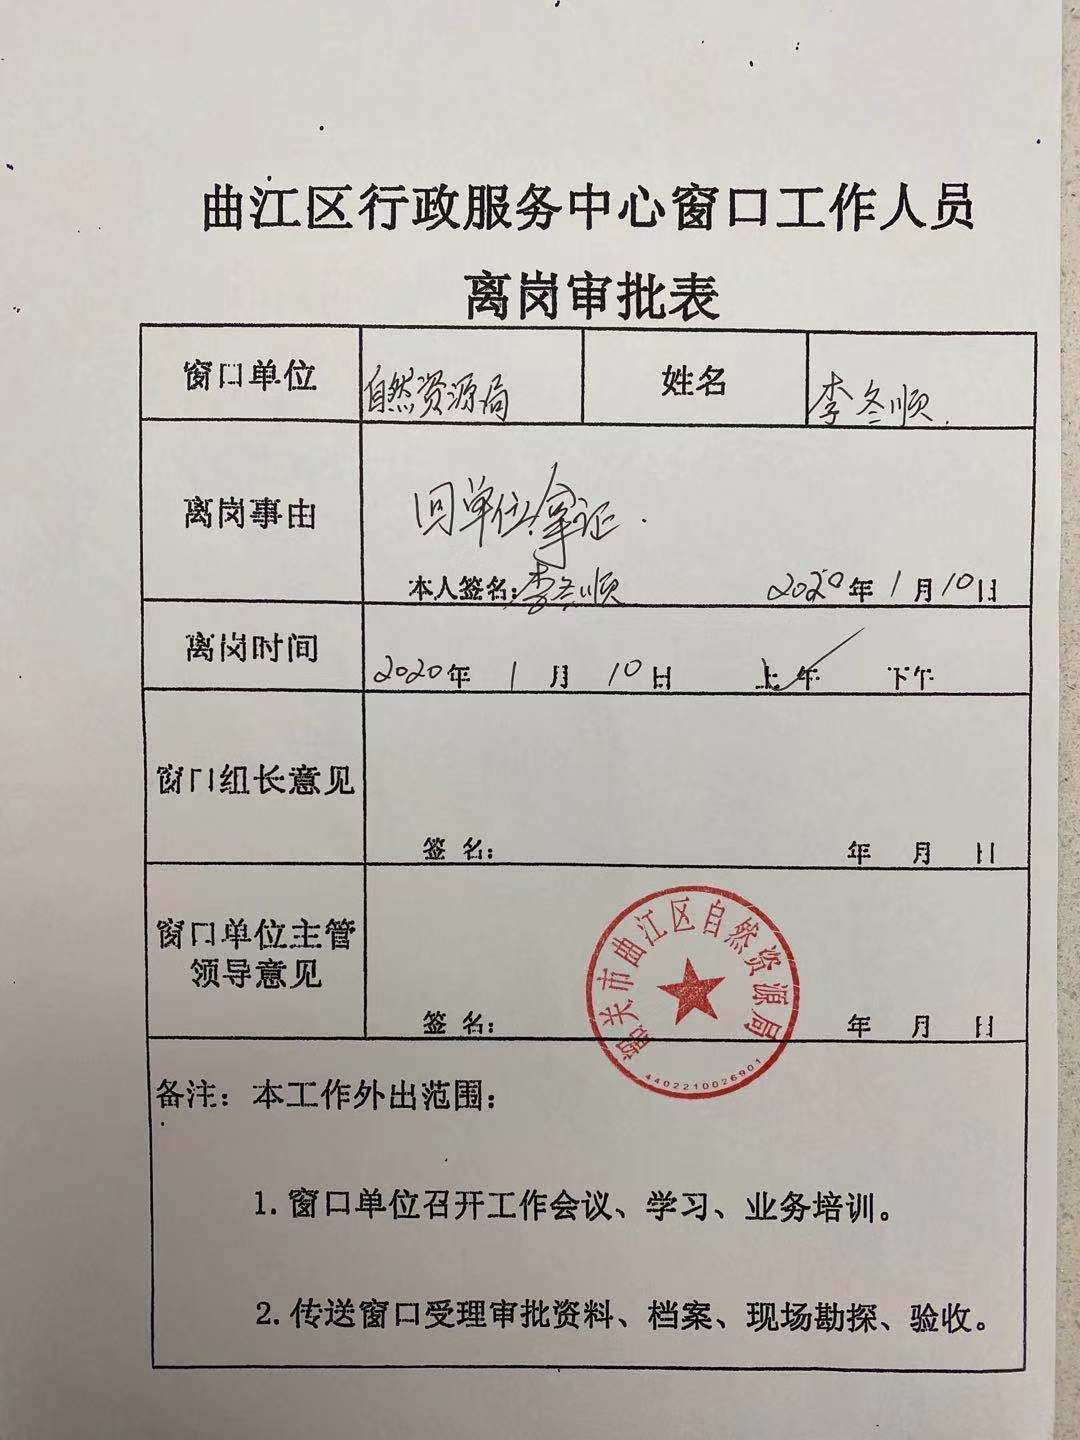 曲江区行政服务中心窗口工作人员
离岗审批表
窗口单位 自然资源局 姓名 李冬顺.
离岗事由 回单位拿证.
本人签名:李冬顺 2020年1月10日
离岗时间 2020年 1月 10日 上午 下午
窗口组长意见
签 名: 年 月 日
窗口单位主管
领导意见
签 名: 年 月 日
韶关市曲江区自然资源局
4402210026901
备注: 本工作外出范围:
1.窗口单位召开工作会议、学习、业务培训。
2.传送窗口受理审批资料、档案、现场勘探、验收。